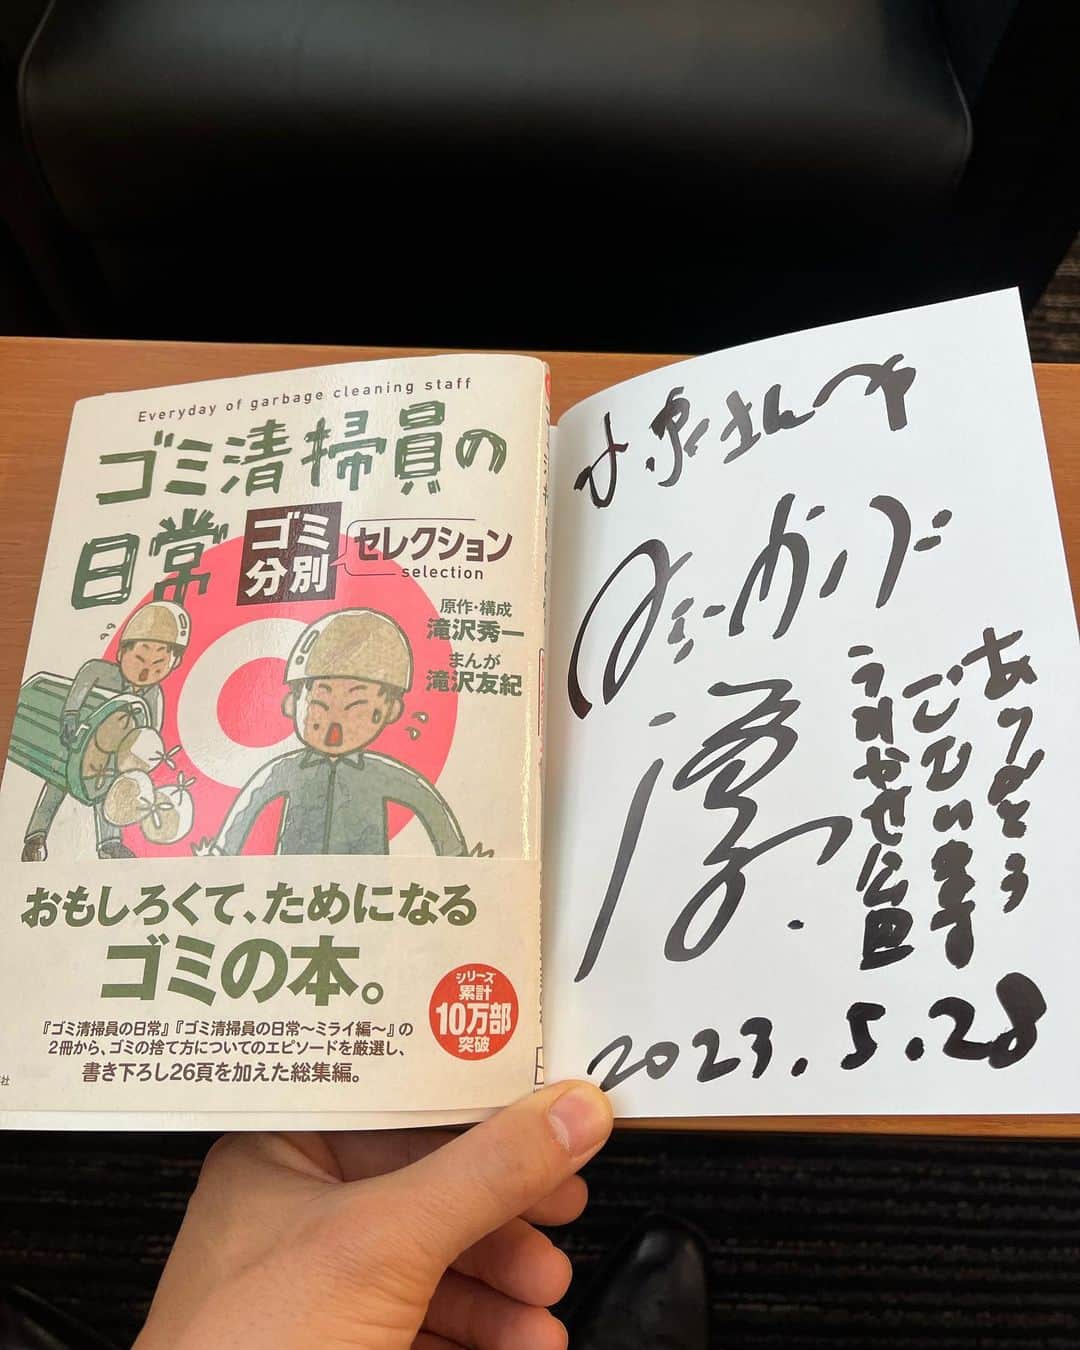 Everyday of garbage cleaning staff
ゴミ清掃員の
日常
ゴミ
分別
セレクション
selection
原作・構成
滝沢秀一
まんが
滝沢友紀
おもしろくて、ためになる
ゴミの本。
シリーズ
累計
10万部
突破
『ゴミ清掃員の日常』『ゴミ清掃員の日常〜ミライ編〜』の
2冊から、ゴミの捨て方についてのエピソードを厳選し、
書き下ろし26頁を加えた総集編。
ありがとう
ございます
2023.5.28